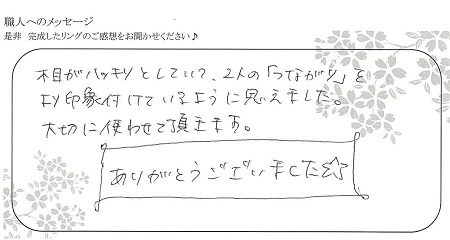 職人へのメッセージ
是非 完成したリングのご感想をお聞かせください♪
木目がハッキリとしていて、2人の「つながり」を
より印象付けているように思えました。
大切に使わせて頂きます。
ありがとうございました☆